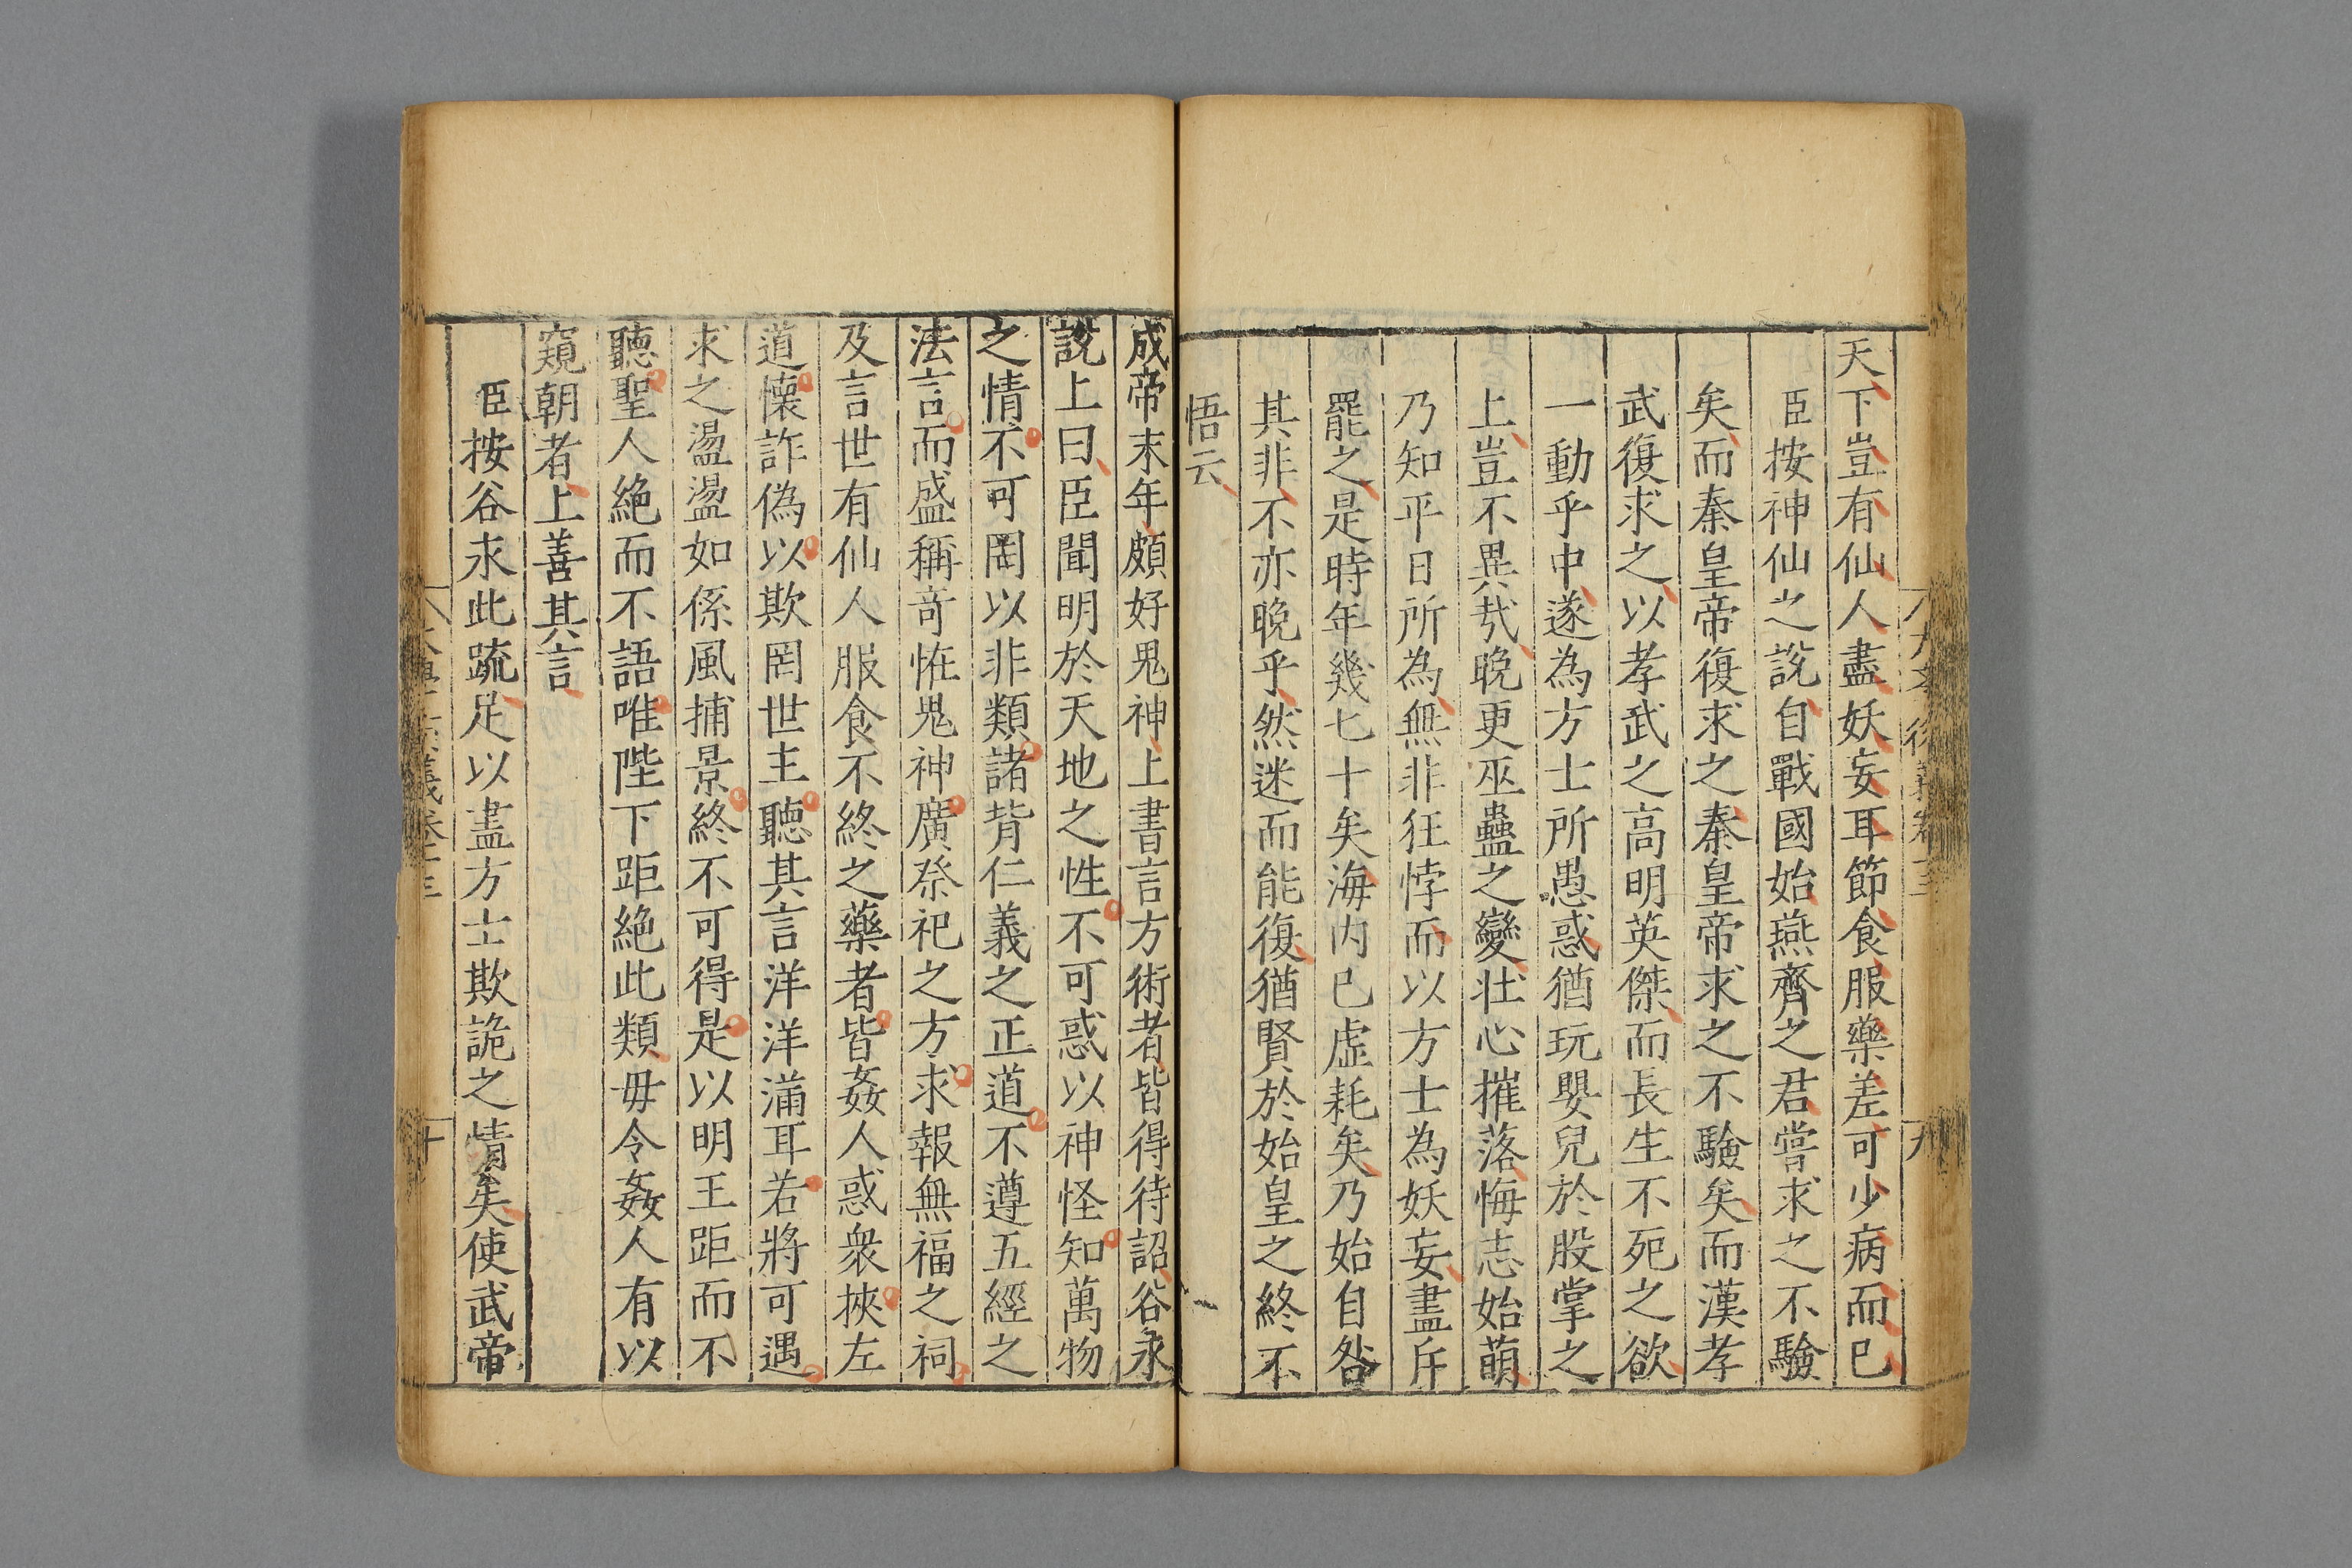 天下豈有仙人盡妖妄耳節食服藥差可少病而已
臣按神仙之說自戰國始燕齊之君嘗求之不驗
矣而秦皇帝復求之秦皇帝求之不驗矣而漢孝
武復求之以孝武之高明英傑而長生不死之欲
一動乎中遂為方士所愚惑猶玩嬰兒於股掌之
上豈不異哉晚更巫蠱之變壮心摧落悔志始萌
乃知平日所為無非狂悖而以方士為妖妄盡斥
罷之是時年幾七十矣海内已虛耗矣乃始自咎
其非不亦晚乎然迷而能復猶賢於始皇之終不
悟云
成帝末年頗好鬼神上書言方術者皆得待詔谷永
說上曰臣聞明於天地之性不可惑以神怪知萬物
之情不可罔以非類諸背仁義之正道不遵五經之
法言而盛稱竒恠鬼神廣祭祀之方求報無福之祠
及言世有仙人服食不終之藥者皆姦人惑衆挾左
道懷詐偽以欺罔世主聽其言洋洋滿耳若將可遇
求之盪盪如係風捕景終不可得是以明王距而不
聽聖人絶而不語唯陛下距絶此類毋令姦人有以
窺朝者上善其言
臣按谷永此疏足以盡方士欺詭之情矣使武帝